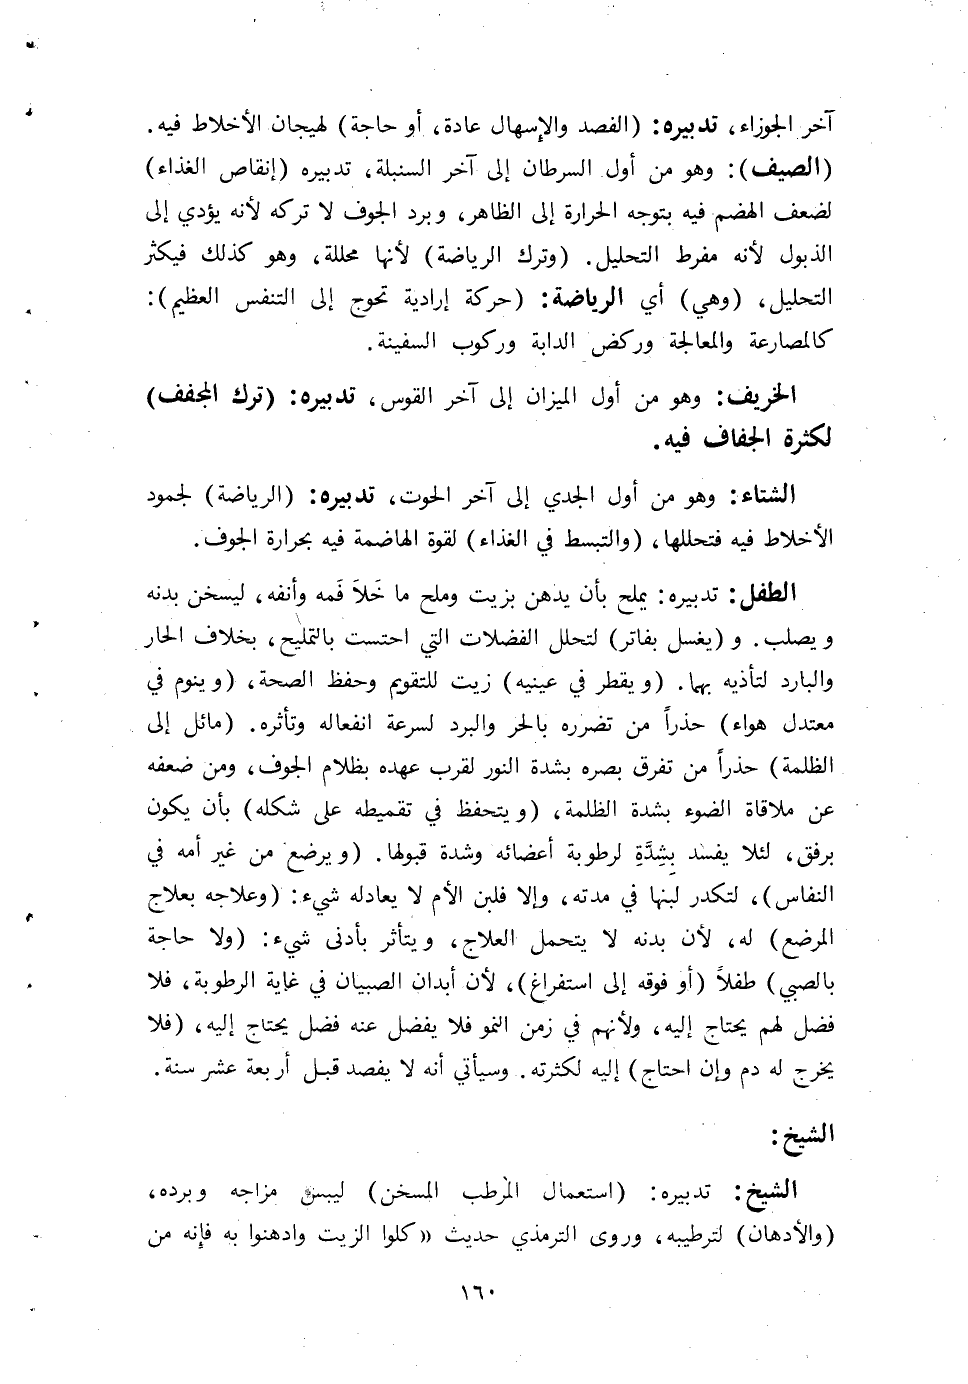 آخر الجوزاء، تدبيره: (الفصد والإسهال عادة، أو حاجة) لهيجان الأخلاط فيه.
(الصيف): وهو من أول السرطان إلى آخر السنبلة، تدبيره (إنقاص الغذاء)
لضعف الهضم فيه بتوجه الحرارة إلى الظاهر، وبرد الجوف لا تركه لأنه يؤدي إلى
الذبول لأنه مفرط التحليل. (وترك الرياضة) لأنها محللة، وهو كذلك فيكثر
التحليل، (وهي) أي الرياضة: (حركة إرادية تحوج إلى التنفس العظيم):
كالمصارعة والمعالجة وركض الدابة وركوب السفينة.
الخريف: وهو من أول الميزان إلى آخر القوس، تدبيره: (ترك المجفف)
لكثرة الجفاف فيه.
الشتاء: وهو من أول الجدي إلى آخر الحوت، تدبيره: (الرياضة) لجمود
الأخلاط فيه فتحللها، (والتبسط في الغذاء) لقوة الهاضمة فيه بحرارة الجوف.
الطفل: تدبيره: يملح بأن يدهن بزيت وملح ما خَلاَ فَمه وأنفه، ليسخن بدنه
ويصلب. و (يغسل بفاتر) لتحلل الفضلات التي احتست بالتمليح، بخلاف الحار
والبارد لتأذيه بهما. (ويقطر في عينيه) زيت للتقويم وحفظ الصحة، (وينوم في
معتدل هواء) حذراً من تضرره بالحر والبرد لسرعة انفعاله وتأثره. (مائل إلى
الظلمة) حذراً من تفرق بصره بشدة النور لقرب عهده بظلام الجوف، ومن ضعفه
عن ملاقاة الضوء بشدة الظلمة، (ويتحفظ في تقميطه على شكله) بأن يكون
برفق، لئلا يفسد بِشِدَّةِ لرطوبة أعضائه وشدة قبولها. (ويرضع من غير أمه في
النفاس)، لتكدر لبنها في مدته، وإلا فلبن الأم لا يعادله شيء: (وعلاجه بعلاج
المرضع) له، لأن بدنه لا يتحمل العلاج، ويتأثر بأدنى شيء: (ولا حاجة
بالصبي) طفلاً (أو فوقه إلى استفراغ)، لأن أبدان الصبيان في غاية الرطوبة، فلا
فضل لهم يحتاج إليه، ولأنهم في زمن النمو فلا يفضل عنه فضل يحتاج إليه، (فلا
يخرج له دم وإن احتاج) إليه لكثرته. وسيأتي أنه لا يفصد قبل أربعة عشر سنة.
الشيخ:
الشيخ: تدبيره: (استعمال المرطب المسخن) ليبس مزاجه وبرده،
(والأدهان) لترطيبه، وروى الترمذي حديث «كلوا الزيت وادهنوا به فإنه من
١٦٠